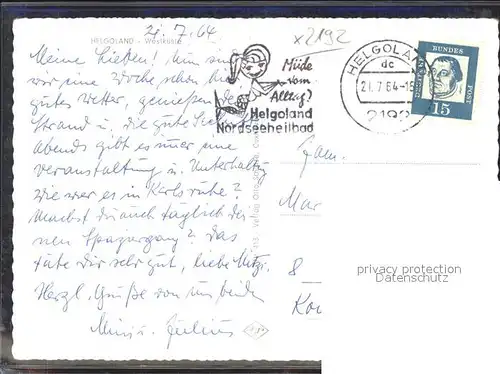 21.7.64
x 2192
HELGOLAND – Westküste
Meine Lieben! Nun sind
wir eine Woche schon hier
gutes Wetter, genießen den
Strand u. die gute See
abends gibt es immer eine
Veranstaltung u. Unterhaltg
Wie war es in Karlsruhe?
Machst du auch täglich dei
nen Spaziergang? Das
täte Dir sehr gut, liebe Mitzi.
Herzl. Grüße von uns beiden
Mimi u. Julius
Müde
vom
Alltag?
Helgoland
Nordseeheilbad
HELGOLAND
dc
21.7.64-15
2192
DEUTSCHE
BUNDES
POST
15
Fam.
Mar
8
privacy protection
Datenschutz